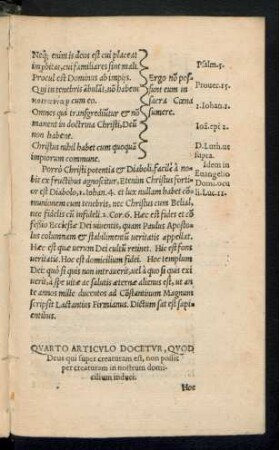 Neq; enim is deus est cui placeat
impietas, cui familiares sint mali. Psalm. 5.
Procul est Dominus ab impijs. Ergo nō pos- Prouer. 15.
Qui in tenebris ābulāt, nō habent sunt eum in
participatum cū eo. sacra Cœna 1. Iohan. 1.
Omnes qui transgrediūtur & nō sumere.
manent in doctrina Christi, Deū Ioā. epi 2.
non habent.
Christus nihil habet cum quoquā D. Luth. ut
impiorum commune. supra.
Porrò Christi potentia & Diaboli, facilè à no- Idem in
bis ex fructibus agnoscitur, Etenim Christus forti- Euangelio
or est Diabolo, 1. Iohan. 4. et lux nullam habet cō- Domi. oculi
munionem cum tenebris, nec Christus cum Belial, ij. Luc. 11.
nec fidelis cū infideli. 2 Cor. 6. Hæc est fides et cō-
fensio Ecclesiæ Dei viuentis, quam Paulus Aposto-
lus columnam & stabilimentū veritatis appellat.
Hæc est quæ uerum Dei cultū retinet. Hic est fons
veritatis. Hoc est domicilium fidei. Hoc templum
Dei: quò si quis non intrauerit, uel à quo si quis exi
uerit, à spe uitæ ac salutis æternæ alienus est, ut an-
te annos mille ducentos ad Cōstantinum Magnum
scripsit Lactantius Firmianus. Dictum sat est sapi-
entibus.
QVARTO ARTICVLO DOCETVR, QVOD
Deus qui super creaturam est, non possit
per creaturam in nostrum domi-
cilium induci.
Hoc